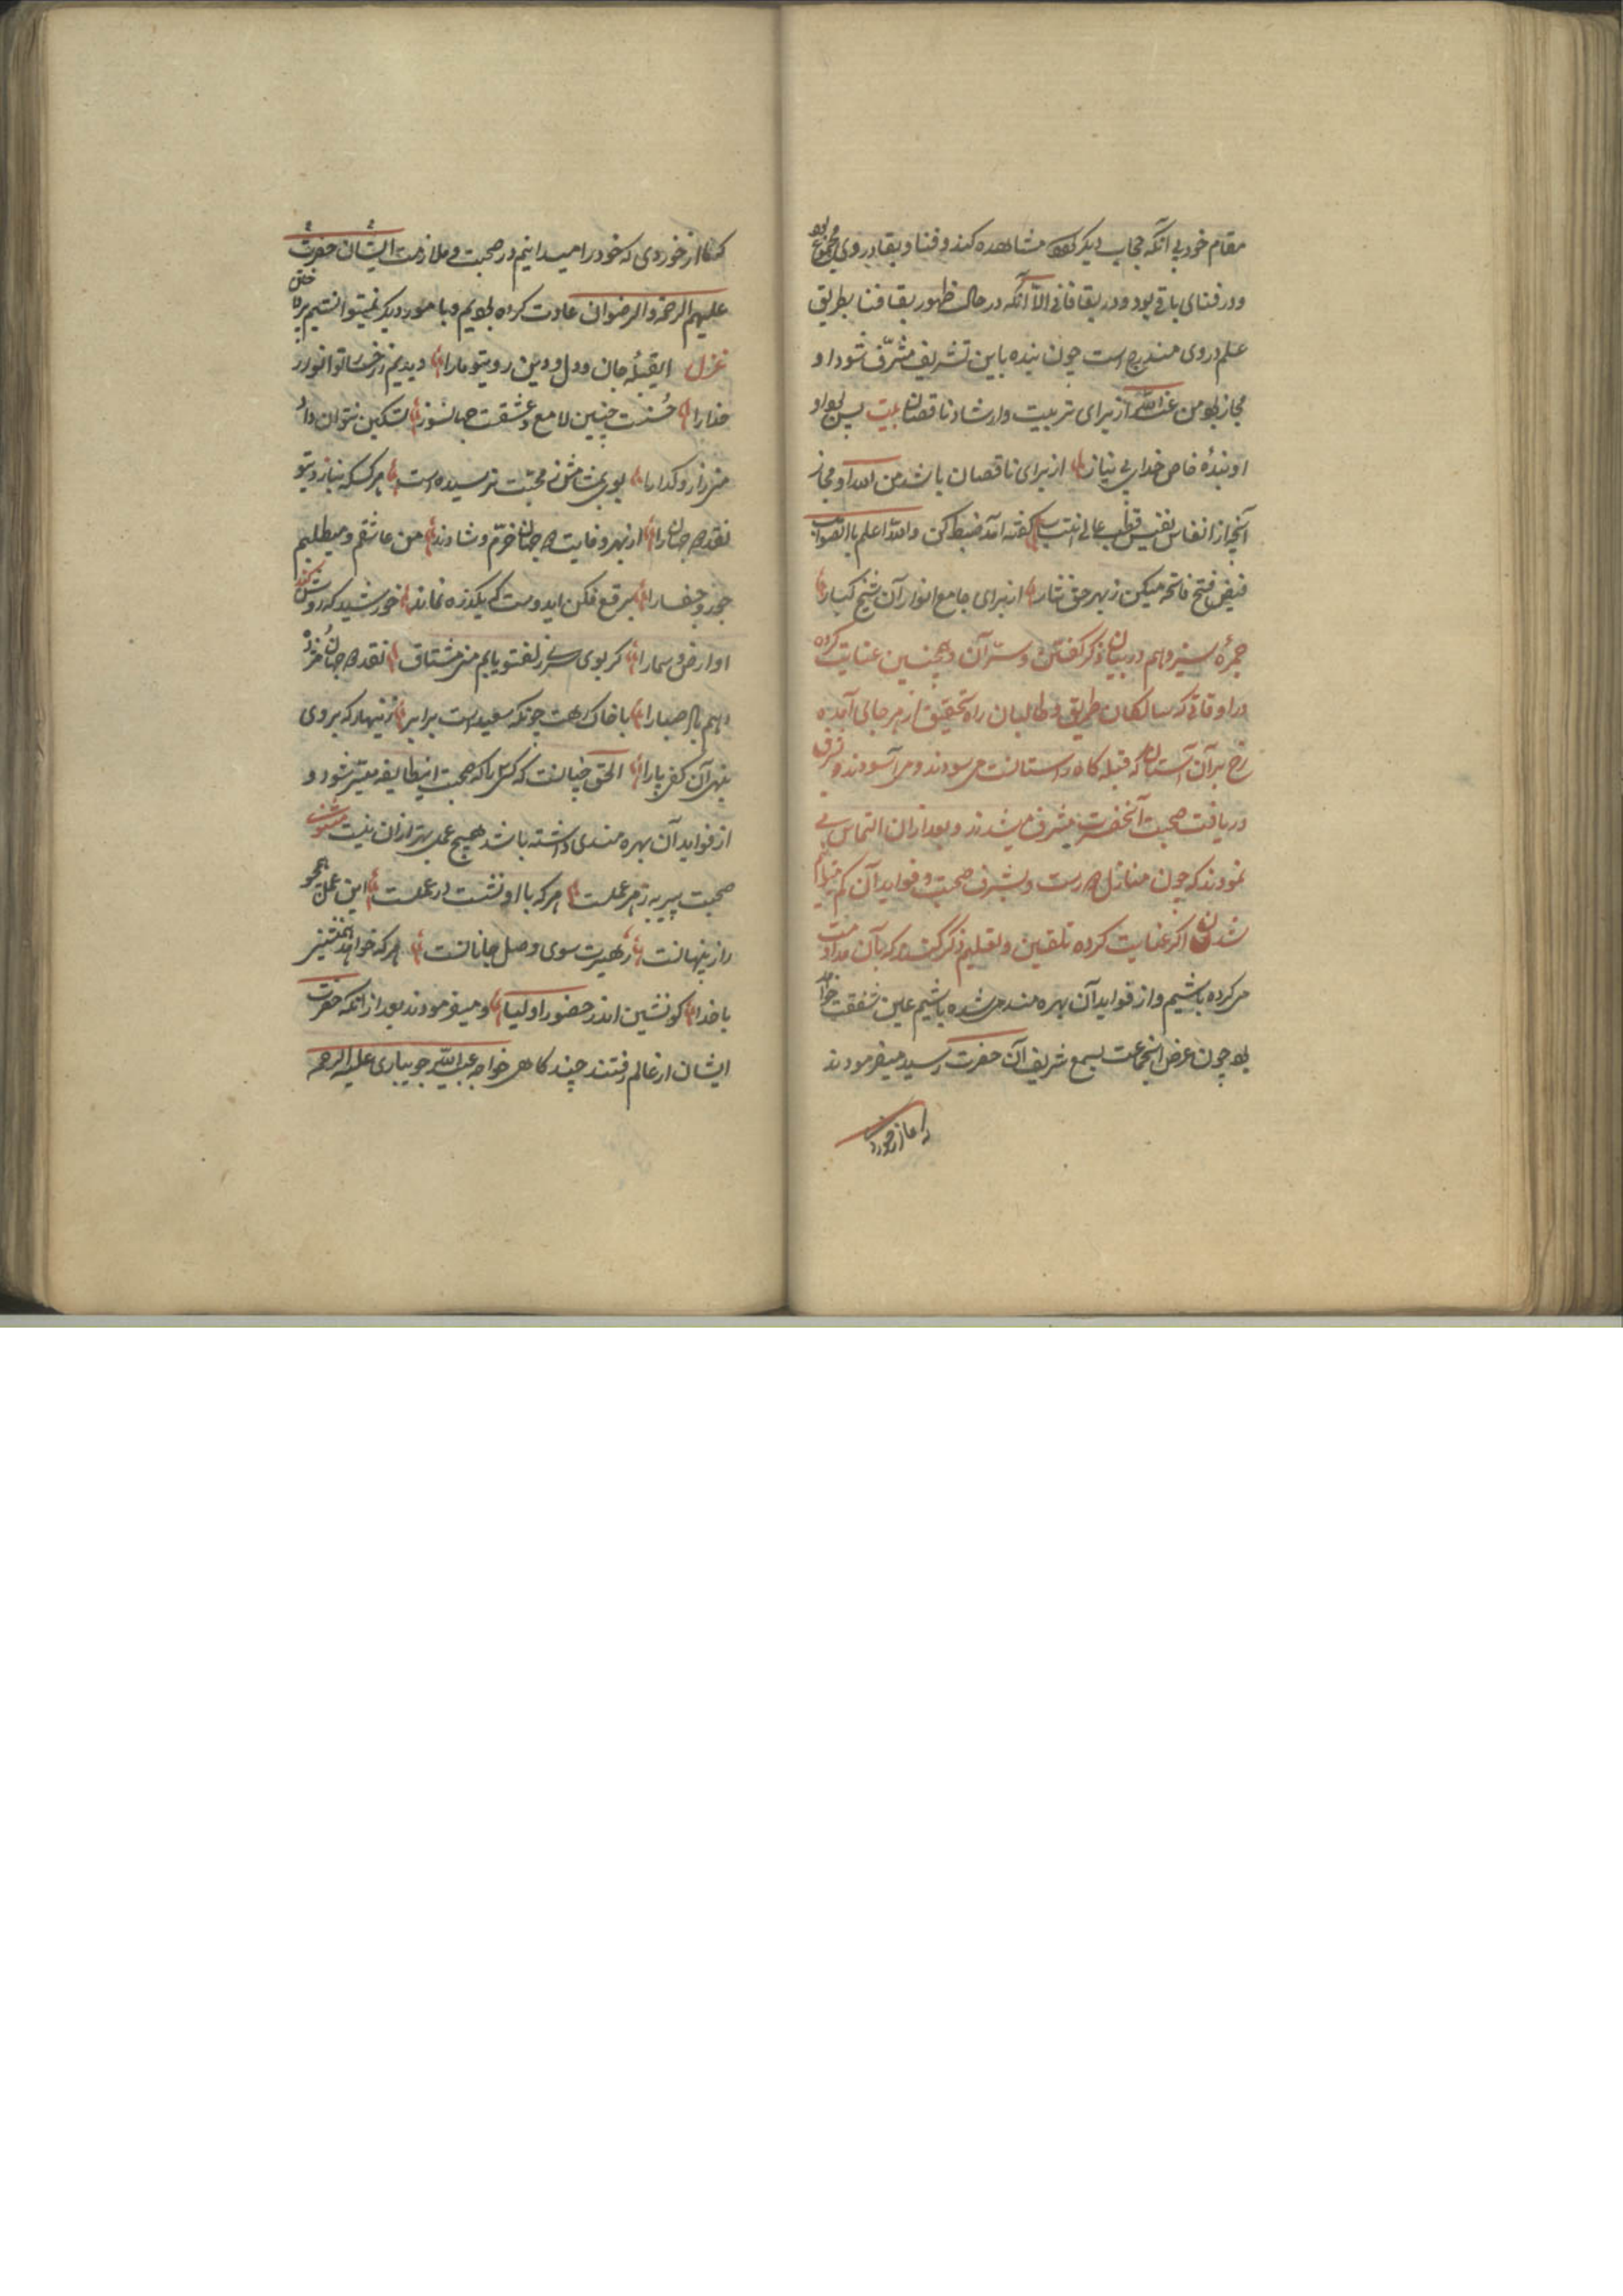 مقام خود بی آنکه حجاب دیگر بود مشاهده کند و فنا و بقا در وی مجموع بود
و در فنای باقی بود و در بقا فانی الا آنکه در حالت ظهور بقا فنا بطریق
علم در وی مندرج است چون بنده باین تشریف مشرف شود او
مجاز بود من عند الله از برای تربیت و ارشاد ناقصان بیت پس بود او
او بنده خاص خدای بی نیاز از برای ناقصان باشد من الله او مجاز
آنچه از انفاس نفیس قطب عالی انتساب گفته آمد ضبط کن والله اعلم باالصواب
فیض فتح فاتحه میکن ز بهر حق نثار از برای جامع انوار آن شیخ کبار
جمره سیزدهم در بیان ذکر گفتن و سر آن و همچنین عنایت کرده
در اوقاتی که سالکان طریق و طالبان راه تحقیق از هر جائی آمده
رخ بر آن آستان که قبله گاه راستانست می سودند و می آسودند و بشرف
دریافت صحبت آنحضرت مشرف میشدند و بعد از آن التماس می
نمودند که چون منازل دورست و بشرف صحبت و فواید آن کم
شدن اگر عنایت کرده تلقین و تعلیم ذکر کنند که بآن مداومت
می کرده باشیم و از فواید آن بهره مند می شده باشیم عین شفقت خواهد
بود چون عرض اینجماعت بسمع شریف آن حضرت رسید میفرمودند
که ما از خوردی
که ما از خوردی که خود را میدانیم در صحبت و ملازمت ایشان حضرت
علیهم الرحمة و الرضوان عادت کرده بودیم و بامور دیگر نمیتوانستیم پرداختن
غزل ایقبله جان و دل و دین رویتو ما را دیدیم ز رخسار تو انوار
خدا را حسنت چنین لامع و عشقت جهانسوز تسکین نتوان داد
من زار و گدا را بوی ز محبت نرسیده است هر کسکه بناز و بتو
نقد دو جهان را از بهر وفایت دو جهان خرم و شادند من عاشقم و میطلبم
جور و جفا را برقع فکن ایدوست که یکذره نماند خورشید که روشن کند
او ارض و سما را گر بوی سر زلفتو یابم من مشتاق نقد دو جهان مژده
دهم باد صبا را با خاک رهت چونکه سعیدست برابر زنهار که بروی
بنهی آن کف پا را الحق چنانست که کسی را که صحبت اینطایفه میسر شود و
از فواید آن بهره مندی داشته باشد هیچ عمل بهتر از آن نیست مثنوی
صحبت پیر به ز هر عملست هر که با او نشست در عملست این عمل همچو
راز پنهانست رهبرت سوی وصل جانانست هر که خواهد همنشینی
با خدا گو نشین اندر حضور اولیا و میفرمودند بعد از آنکه حضرت
ایشان از عالم رفتند چند گاهی خواجه عبدالله جویباری علیه الرحمه